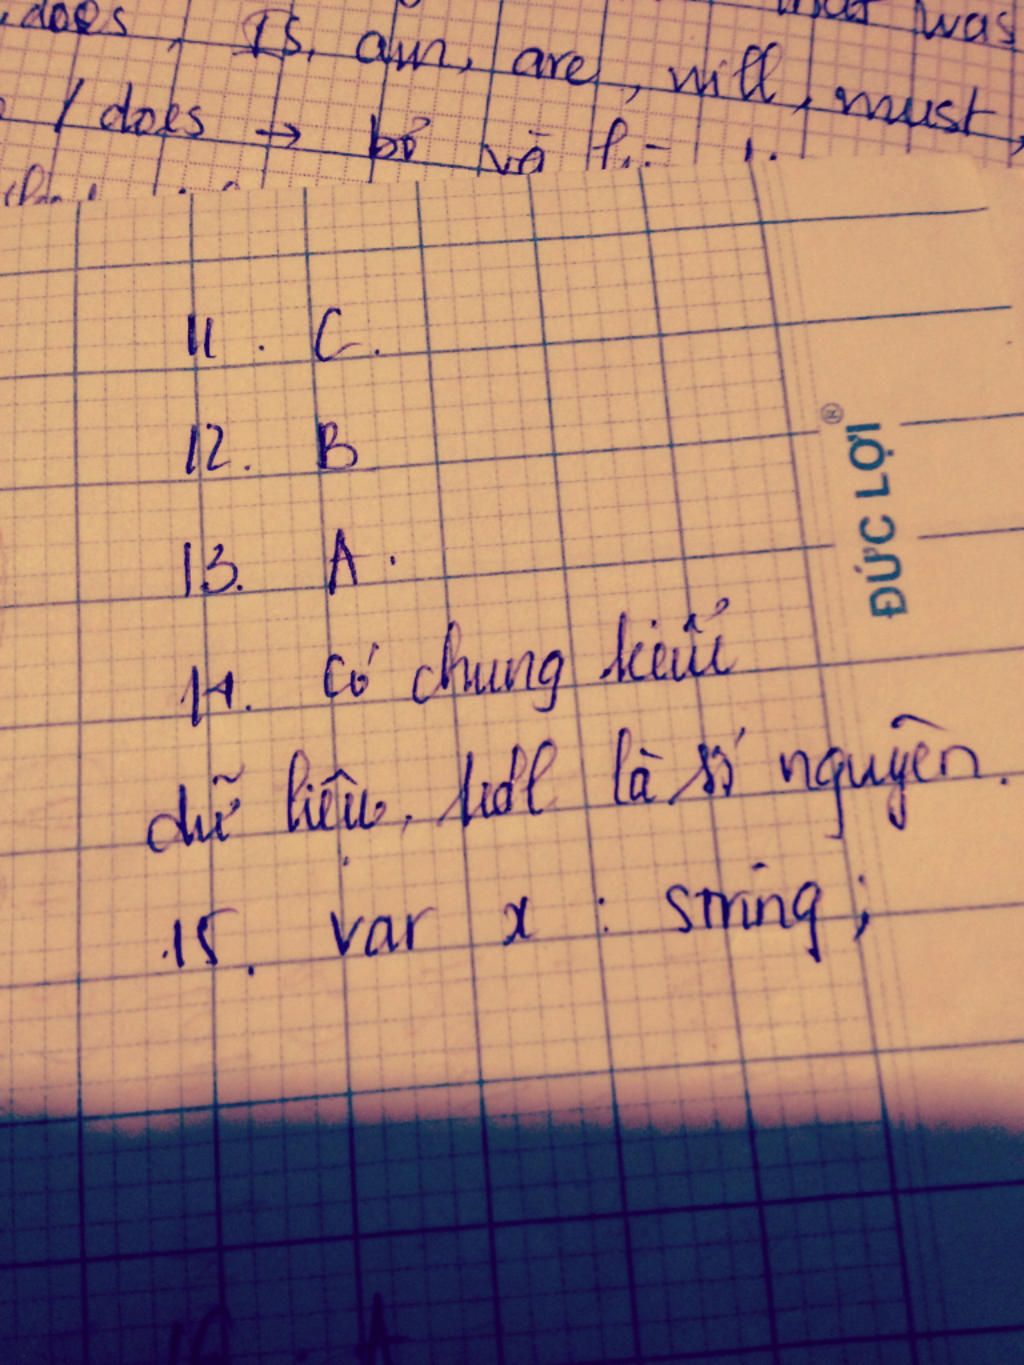 does, Is, am, are, will, must,
was
/ does → bỏ và
11. C.
12. B
13. A.
14. Có chung kiểu
dữ liệu, kdl là số nguyên.
15. var x : string;
ĐỨC LỢI®